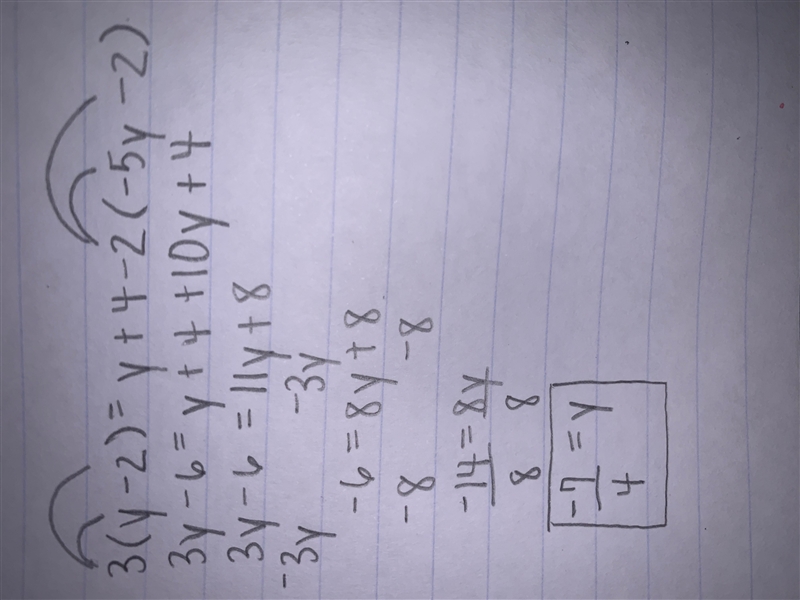 3(y-2)= y+4-2(-5y-2)
3y-6= y+4+10y+4
3y-6 = 11y+8
-3y -3y
-6 = 8y+8
-8 -8
-14 = 8y
8 8
-7 = y
4